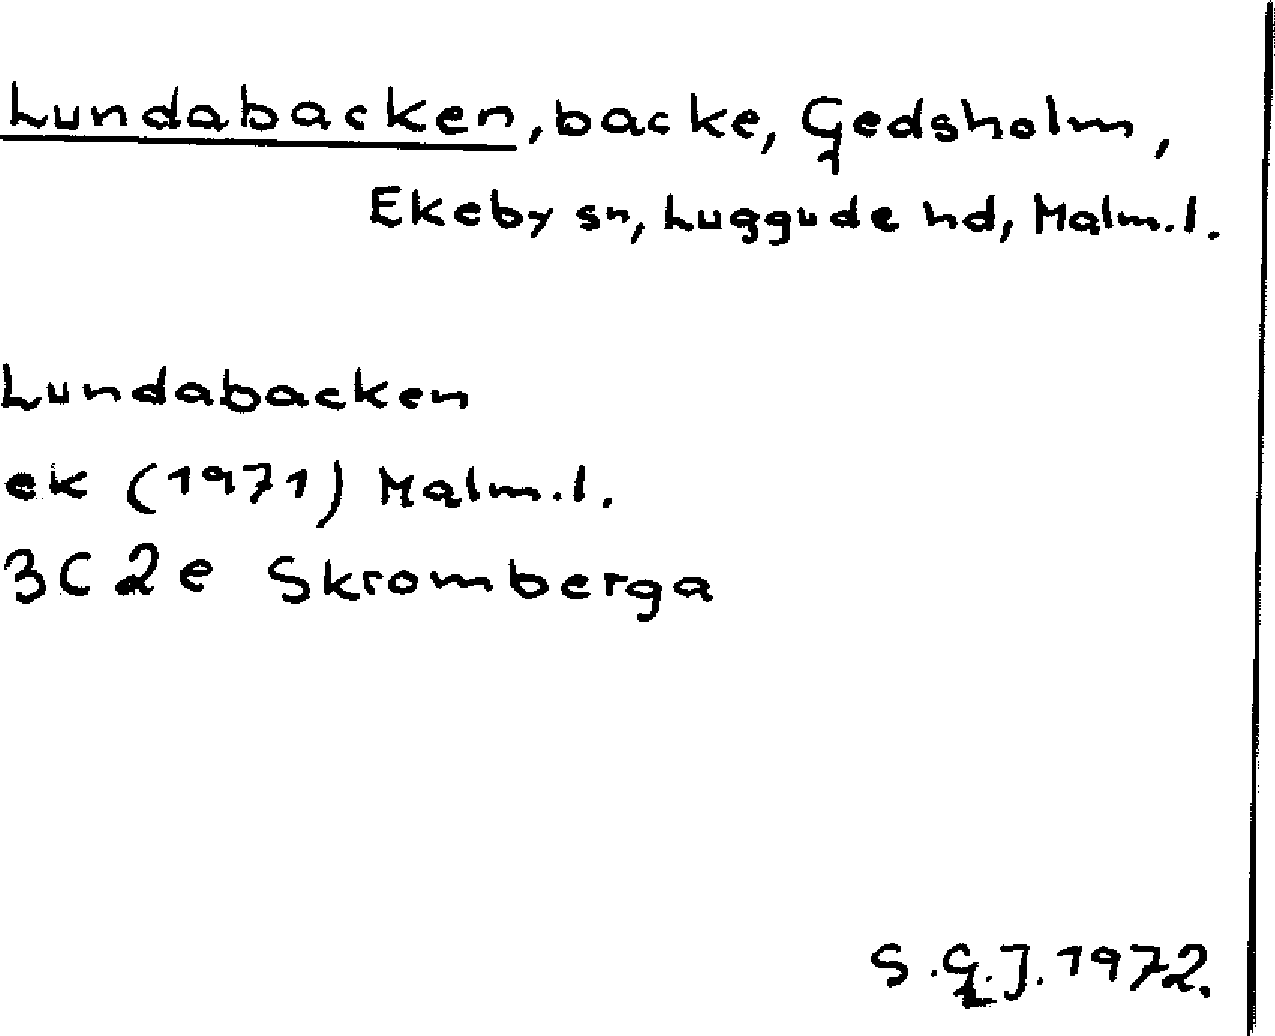 Lundabacken, backe, Gedsholm,
Ekeby sn, Luggude hd, Malm.l.
Lundabacken
ek (1971) Malm.l.
3C 2e Skromberga
S.G.J. 1972.